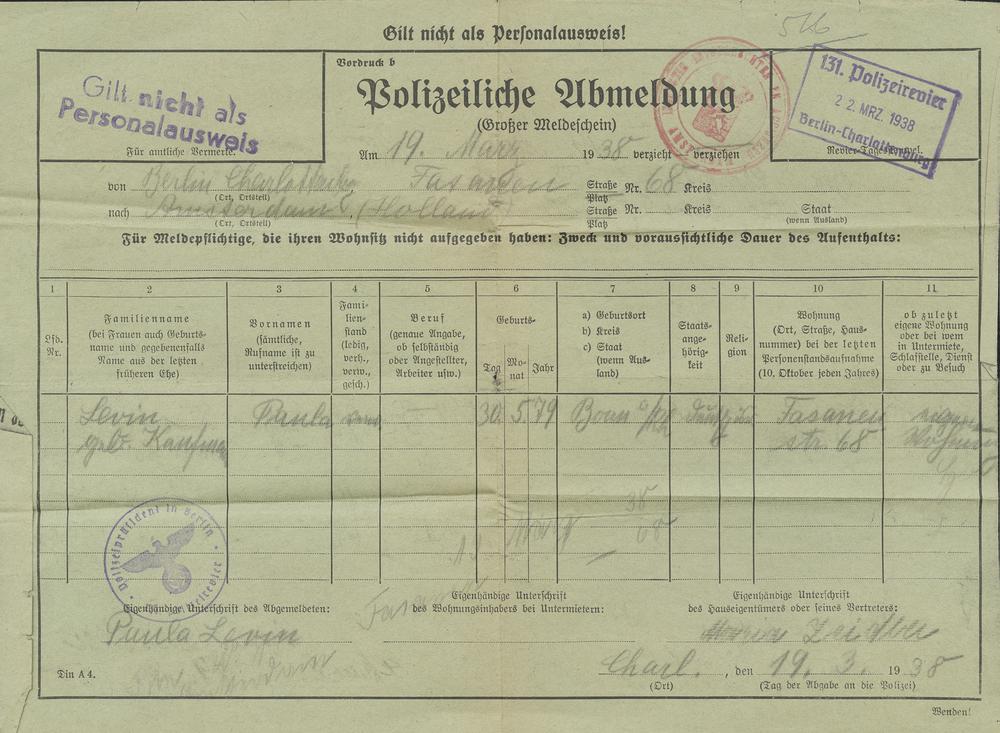 Gilt nicht als Personalausweis!
516
Gilt nicht als
Personalausweis
Für amtliche Vermerke.
Vordruck b
Polizeiliche Abmeldung
(Großer Meldeschein)
131. Polizeirevier
22. MRZ. 1938
Berlin-Charlottenburg
Revier-Tagesstempel.
Am 19. März 1938 verzieht verziehen
von Berlin Charlottenbg Fasanen Straße Platz Nr. 68 Kreis
(Ort, Ortsteil)
nach Amsterdam (Holland) Straße Platz Nr. Kreis Staat
(Ort, Ortsteil) (wenn Ausland)
Für Meldepflichtige, die ihren Wohnsitz nicht aufgegeben haben: Zweck und voraussichtliche Dauer des Aufenthalts:
1 2 3 4 5 6 7 8 9 10 11
Lfd. Nr.
Familienname
(bei Frauen auch Geburts-
name und gegebenenfalls
Name aus der letzten
früheren Ehe)
Vornamen
(sämtliche,
Rufname ist zu
unterstreichen)
Fami-
lien-
stand
(ledig,
verh.,
verw.,
gesch.)
Beruf
(genaue Angabe,
ob selbständig
oder Angestellter,
Arbeiter usw.)
Geburts-
Tag Mo-nat Jahr
a) Geburtsort
b) Kreis
c) Staat
(wenn Aus-
land)
Staats-
ange-
hörig-
keit
Reli-
gion
Wohnung
(Ort, Straße, Haus-
nummer) bei der letzten
Personenstandsaufnahme
(10. Oktober jeden Jahres)
ob zuletzt
eigene Wohnung
oder bei wem
in Untermiete,
Schlafstelle, Dienst
oder zu Besuch
Levin Paula 30. 5. 79 Bonn Fasanen
geb. Kaufmann str. 68 Wohnung
38
68
Polizeipräsident in Berlin
Eigenhändige Unterschrift des Abgemeldeten:
Paula Levin
Eigenhändige Unterschrift
des Wohnungsinhabers bei Untermietern:
Eigenhändige Unterschrift
des Hauseigentümers oder seines Vertreters:
Zeidler
Din A 4.
Charl., den 19. 3. 1938
(Ort) (Tag der Abgabe an die Polizei)
Wenden!